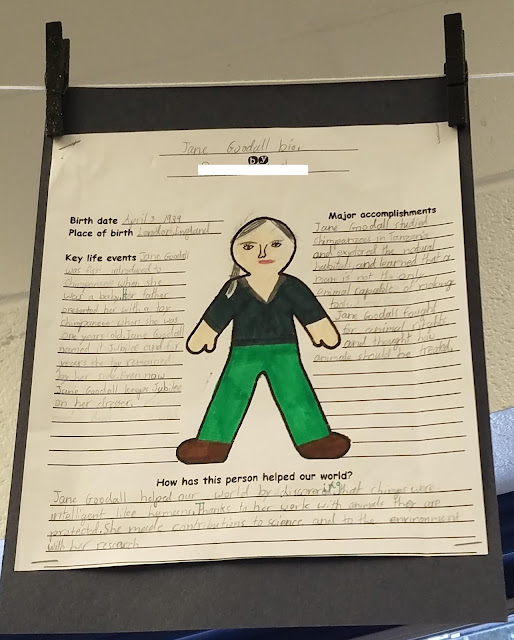 Jane Goodall bio.
by
Birth date April 3 1934
Place of birth London, England
Key life events Jane Goodall
was first introduced to
chimpanzees when she
was a baby
father
presented her with a toy
chimpanzee when she was
one years old. Jane Goodall
named it Jubilee and for
years
Even now
Jane Goodall keeps Jubilee
on her dresser.
Major accomplishments
Jane Goodall studied
chimpanzees in Tanzania
and explored the natural
habitat, and learned that a
man is not the only
animal capable of making
tools.
Jane Goodall fought
for animal rights
and thought how
animals should be treated.
How has this person helped our world?
Jane Goodall helped our world by discovering that chimps were
intelligent like humans. Thanks to her work with animals they are
protected. She made contributions to science and to the environment
with her research